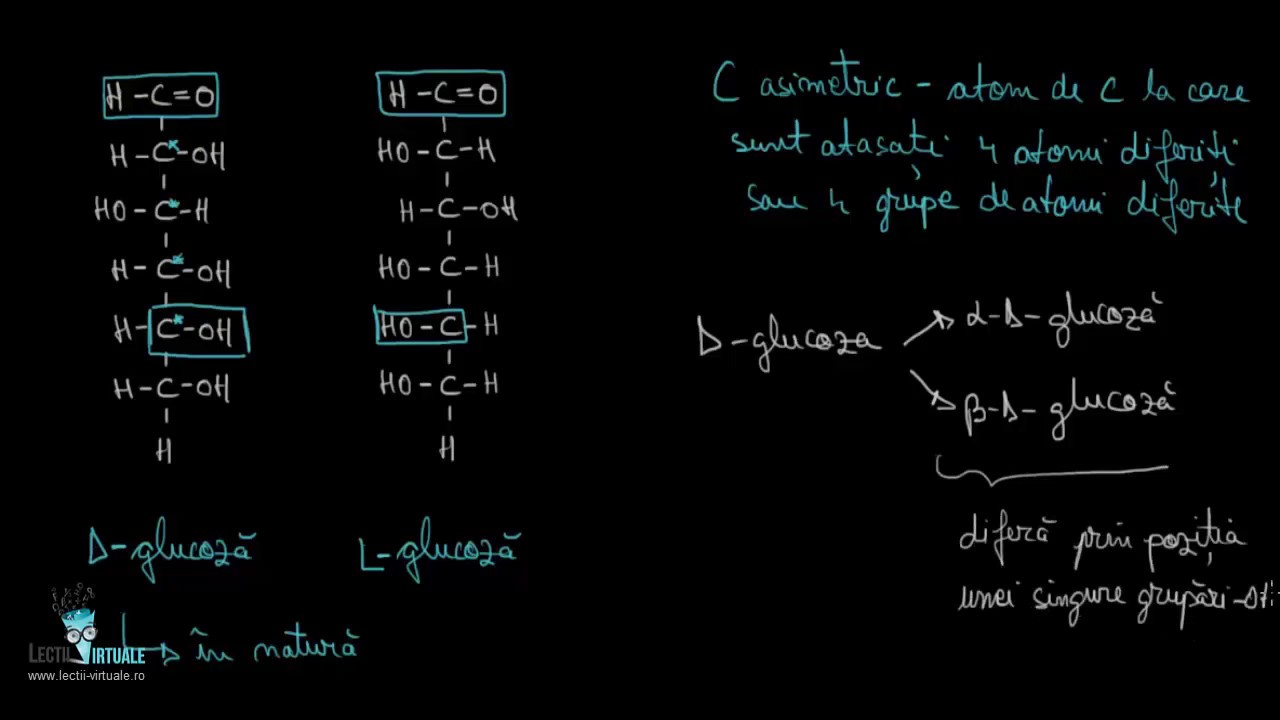 H-C=O
H-C*-OH
HO-C*-H
H-C*-OH
H-C*-OH
H-C-OH
H
D-glucoză
în natură
H-C=O
HO-C-H
H-C-OH
HO-C-H
HO-C-H
HO-C-H
H
L-glucoză
C asimetric - atom de C la care
sunt atașați 4 atomi diferiți
sau 4 grupe de atomi diferite
D-glucoza
α-D-glucoză
β-D-glucoză
diferă prin poziția
unei singure grupări -OH
LECTII VIRTUALE
www.lectii-virtuale.ro